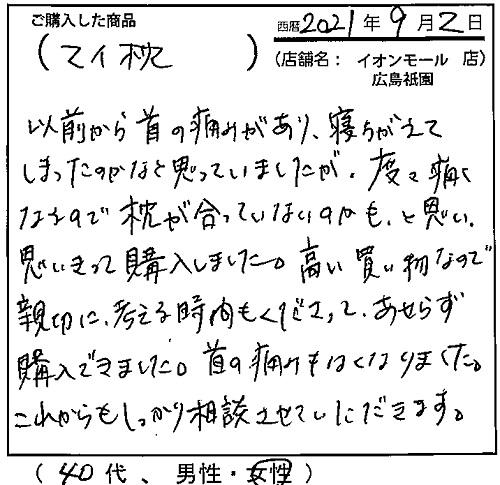 ご購入した商品
西暦 2021 年 9 月 2 日
(マイ枕)
(店舗名: イオンモール 店)
広島祇園
以前から首の痛みがあり、寝ちがえて
しまったのかなと思っていましたが、度々痛く
なるので枕が合っていないのかも、と思い、
思いきって購入しました。高い買い物なので
親切に、考える時間もくださって、あせらず
購入できました。首の痛みもなくなりました。
これからもしっかり相談させていただきます。
(40代、男性・女性)